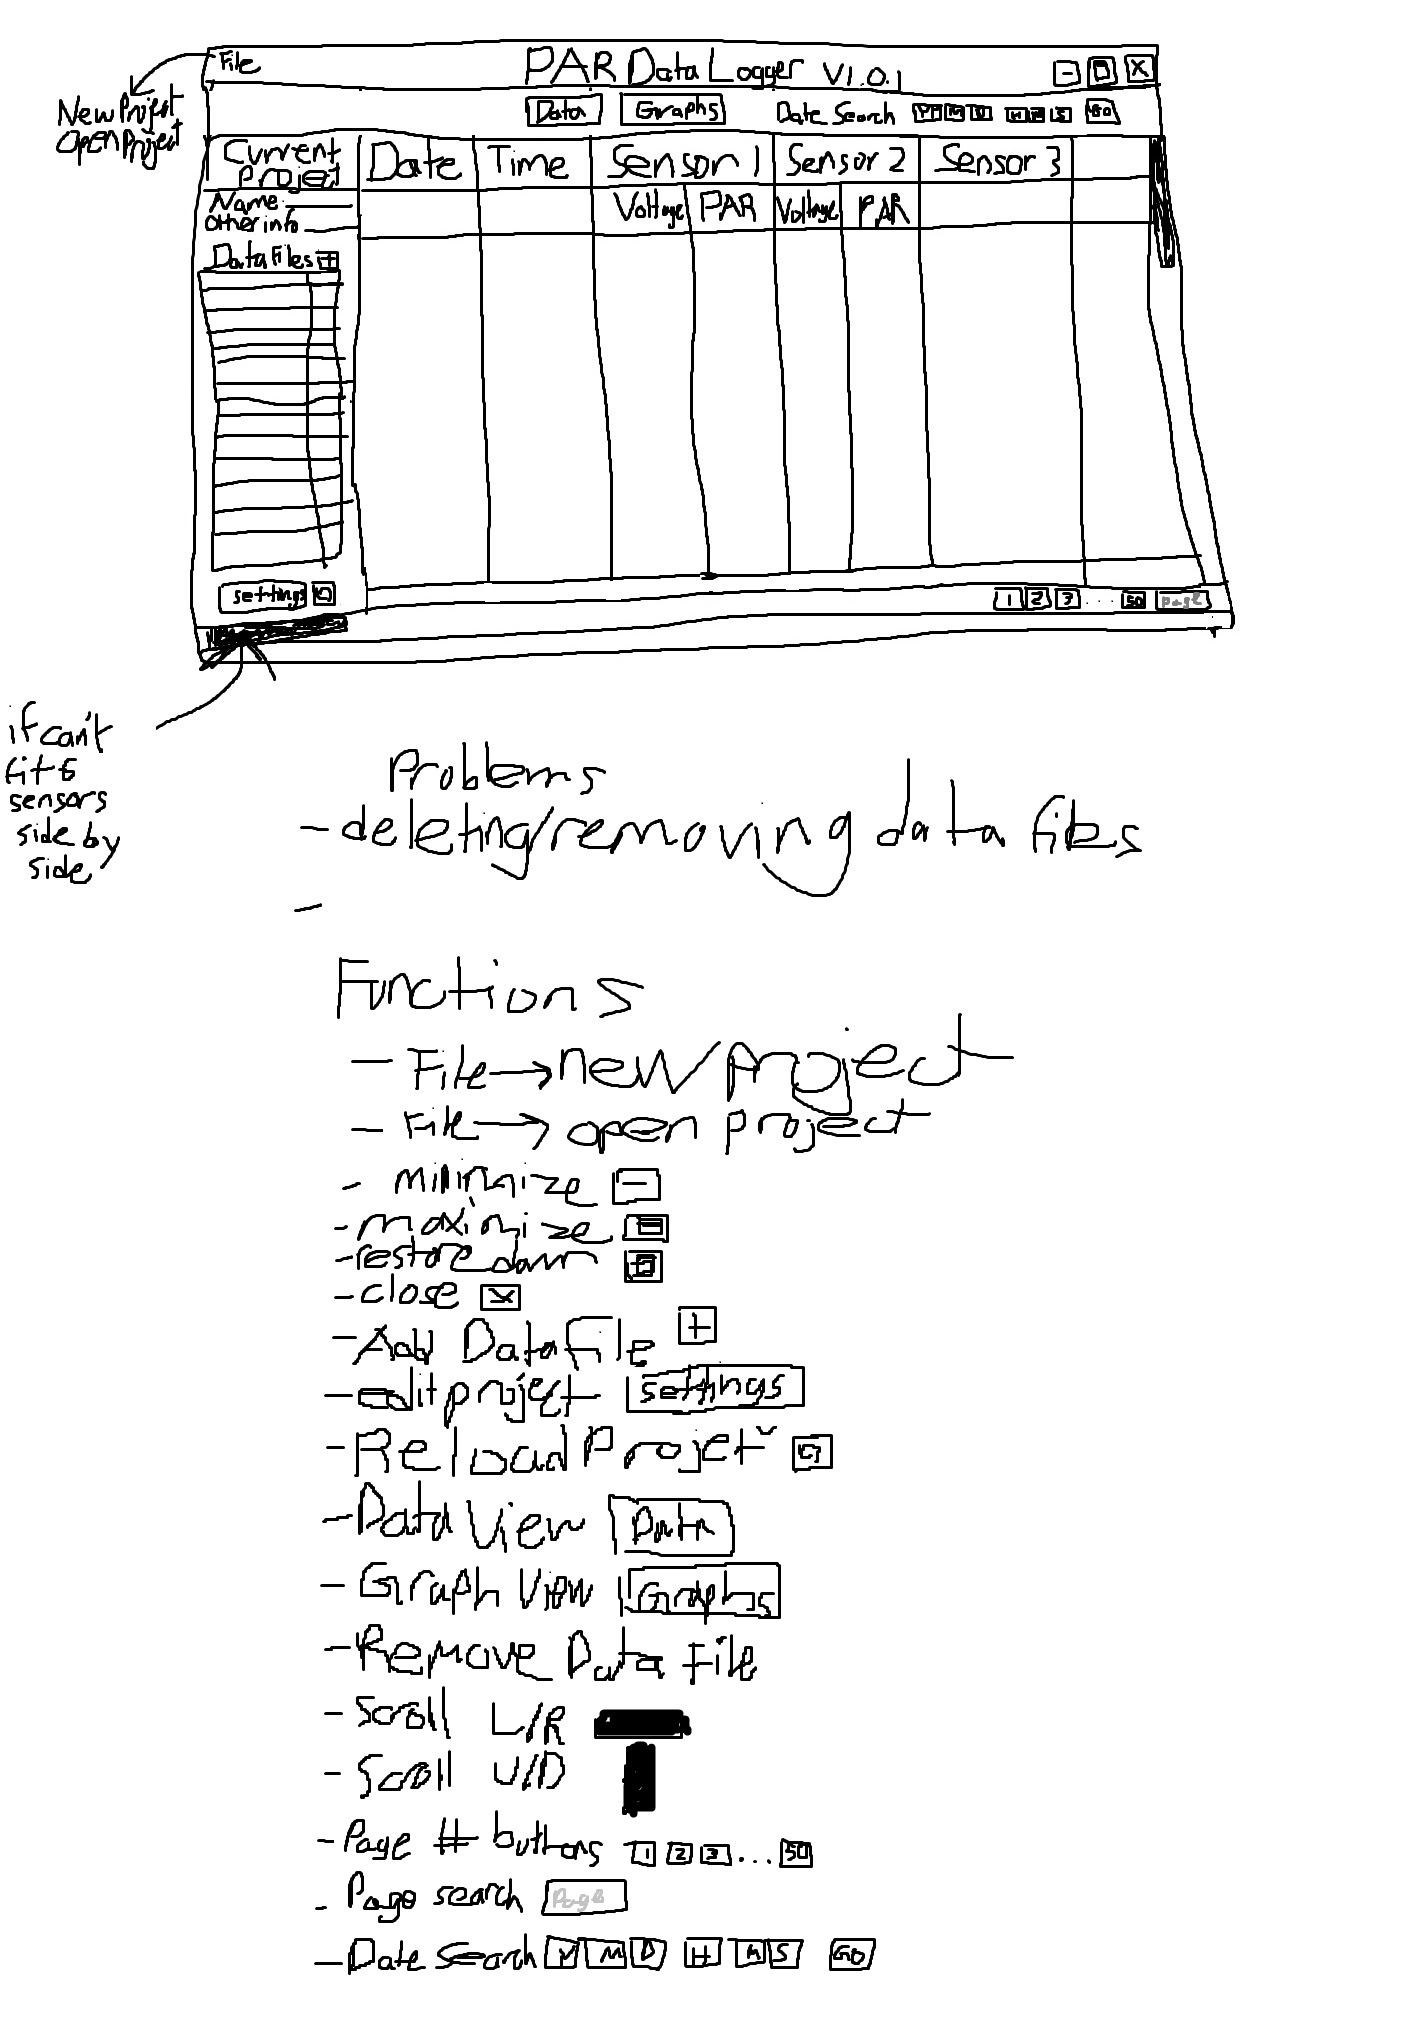 File
PAR Data Logger V1.0.1
- X
New Project
open Project
Data Graphs Date Search Y M D H M S GO
Current
Projet
Date Time Sensor 1 Sensor 2 Sensor 3
Name
Other info
Voltage PAR Voltage PAR
Data Files +
settings
1 2 3 ... 50 Page
if can't
fit 6
sensors
side by
side
Problems
- deleting/removing data files
-
Functions
- File → new project
- File → open project
- minimize -
- maximize
- restore down
- close X
- Add Data File +
- edit project settings
- Reload Projet
- Data View Data
- Graph View Graphs
- Remove Data File
- Scroll L/R
- Scroll U/D
- Page # buttons 1 2 3 ... 50
- Page search Page
- Date Search Y M D H M S GO